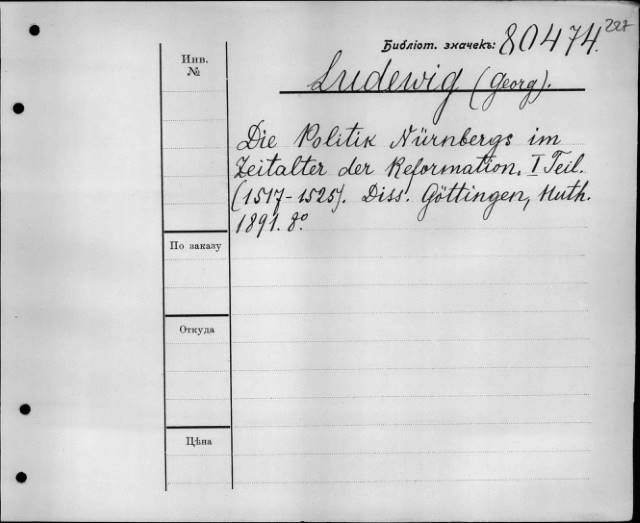 227
Библіот. значекъ: 80474.
Инв.
№
Ludewig (Georg).
Die Politik Nürnbergs im
Zeitalter der Reformation. I Teil.
(1517-1525). Diss. Göttingen, Huth.
1891. 8º.
По заказу
Откуда
Цѣна